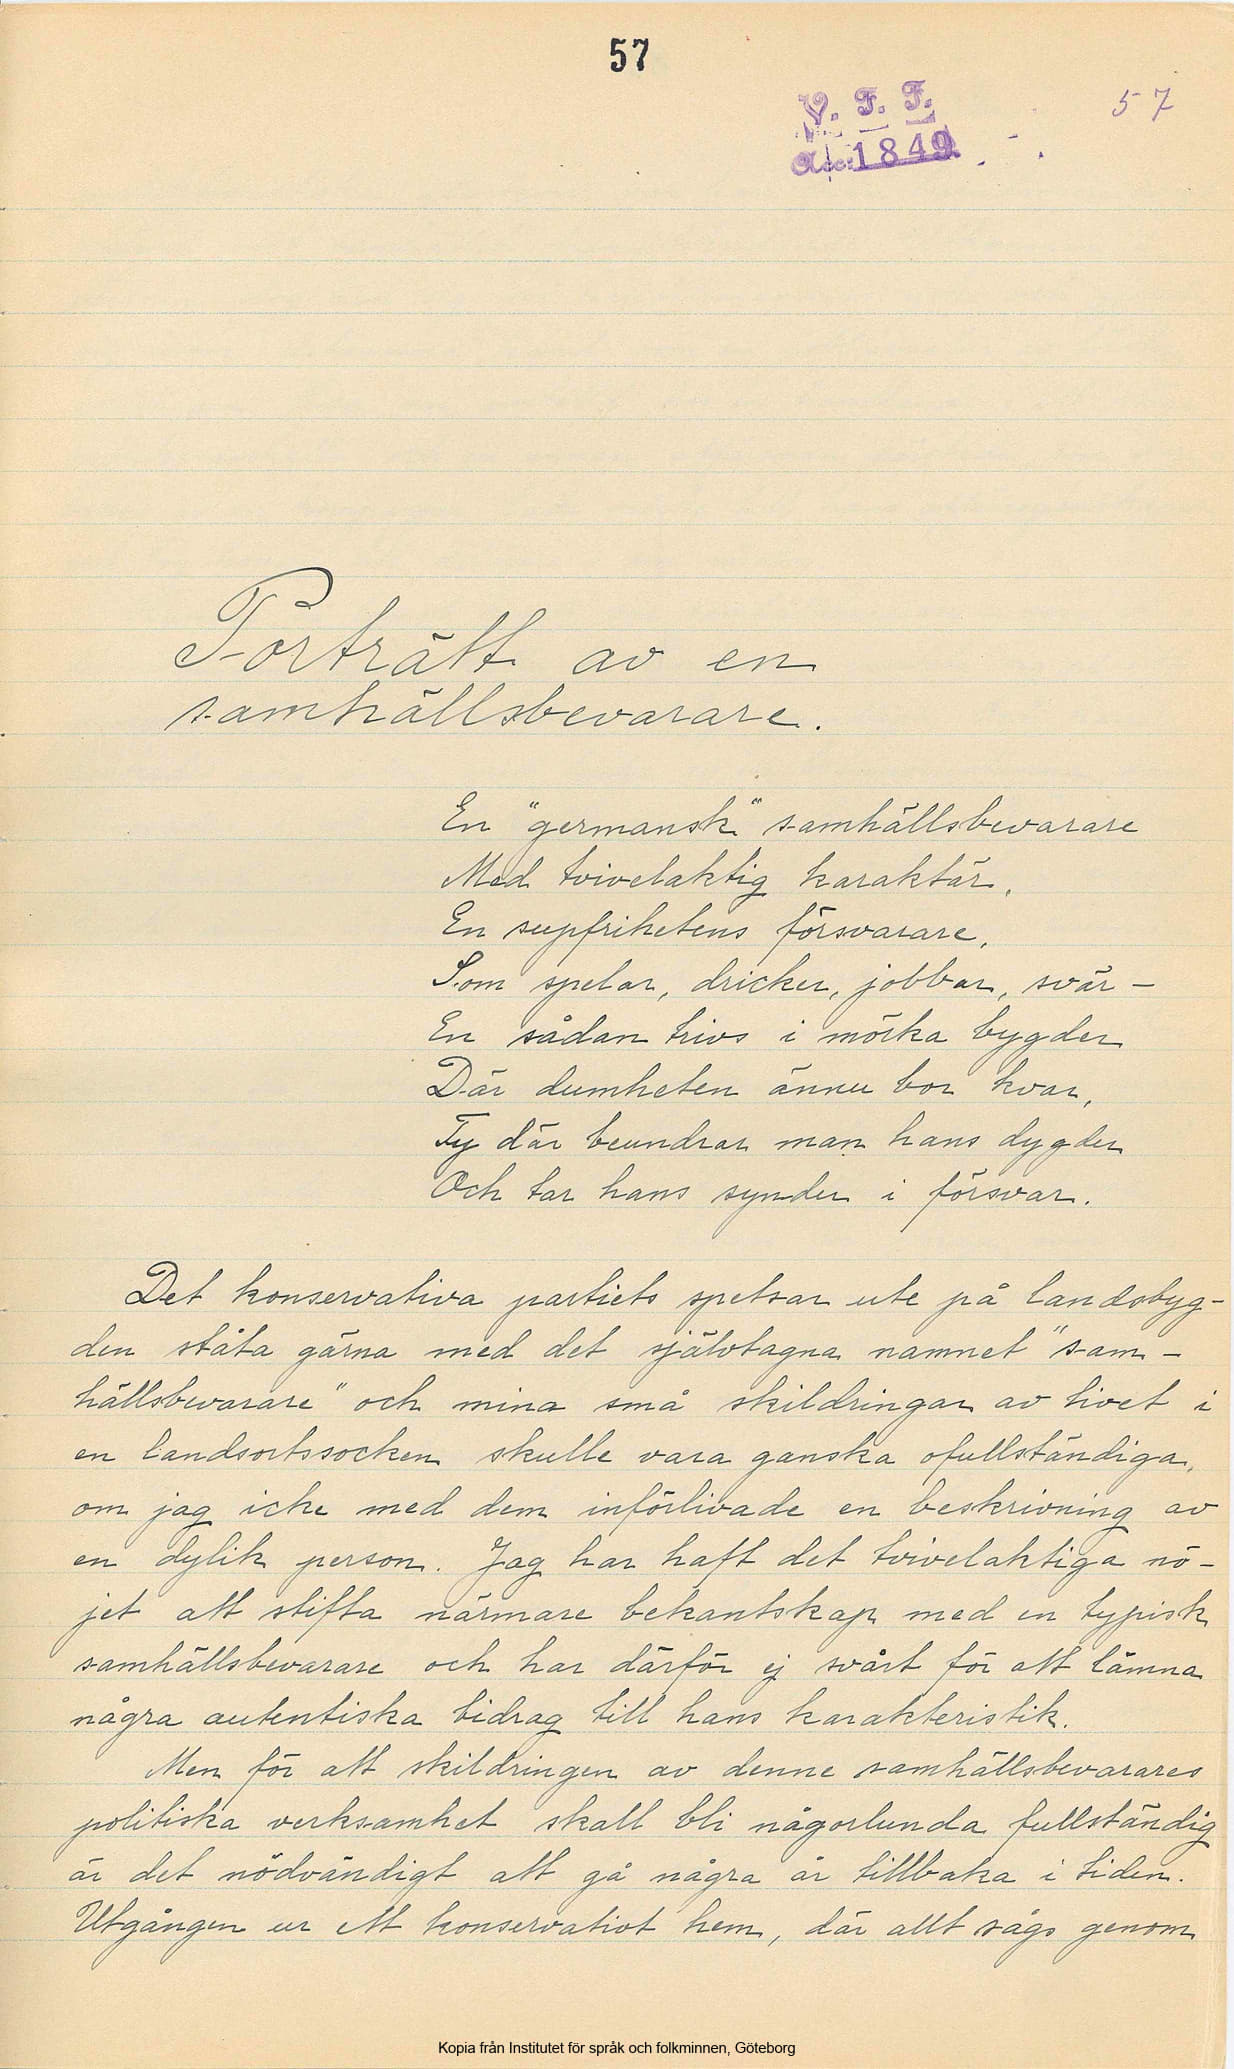 57
V. F. F.
57
Acc: 1849
Porträtt av en
samhällsbevarare.
En "germansk" samhällsbevarare
Med tvivelaktig karaktär,
En supfrihetens försvarare,
Som spelar, dricker, jobbar, svär –
En sådan trivs i mörka bygder
Där dumheten ännu bor kvar,
Ty där beundrar man hans dygder
Och tar hans synder i försvar.
Det konservativa partiets spetsar ute på landsbyg-
den ståta gärna med det självtagna namnet "sam-
hällsbevarare" och mina små skildringar av livet i
en landsortssocken skulle vara ganska ofullständiga,
om jag icke med dem införlivade en beskrivning av
en dylik person. Jag har haft det tvivelaktiga nö-
jet att stifta närmare bekantskap med en typisk
samhällsbevarare och har därför ej svårt för att lämna
några autentiska bidrag till hans karakteristik.
Men för att skildringen av denne samhällsbevarares
politiska verksamhet skall bli någorlunda fullständig
är det nödvändigt att gå några år tillbaka i tiden.
Utgången ur ett konservativt hem, där allt sågs genom
Kopia från Institutet för språk och folkminnen, Göteborg